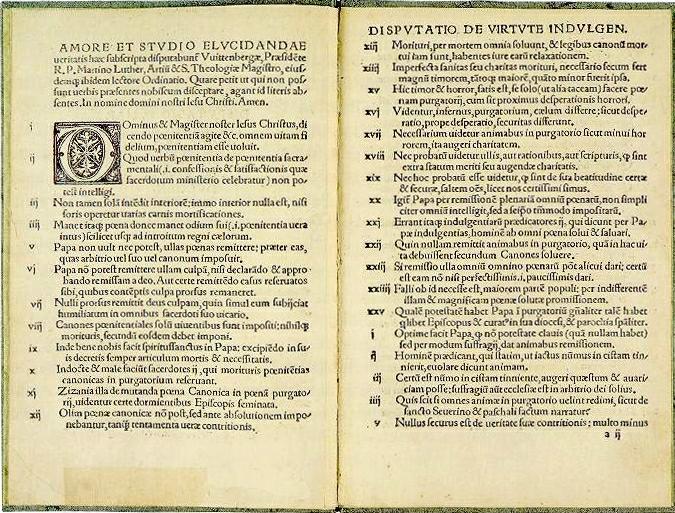 AMORE ET STVDIO ELVCIDANDAE
ueritatis hæc subscripta disputabunť Vuittenbergæ, Præsidẽte
R. P. Martino Luther, Artiũ & S. Theologiæ Magistro, eius⸗
demq̃ ibidem lectore Ordinario. Quare petit ut qui non pos⸗
sunt uerbis præsentes nobiscum disceptare, agant id literis ab⸗
sentes. In nomine domini nostri Iesu Christi. Amen.
i DOminus & Magister noster Iesus Christus, di
cendo pœnitentiã agite &c. omnem uitam fi
delium, pœnitentiam esse uoluit.
ij Quod uerbũ pœnitentia de pœnitentia sacra⸗
mentali (.i. confessionis & satisfactionis quæ
sacerdotum ministerio celebratur) non po⸗
test intelligi.
iij Non tamen solã intẽdit interiorẽ; immo interior nulla est, nisi
foris operetur uarias carnis mortificationes.
iiij Manet itaq̃ pœna donec manet odium sui (.i. pœnitentia uera
intus) scilicet usq̃ ad introitum regni cælorum.
v Papa non uult nec potest, ullas pœnas remittere; præter eas,
quas arbitrio uel suo uel canonum imposuit.
vj Papa nõ potest remittere ullam culpã, nisi declarãdo & appro⸗
bando remissam a deo, Aut certe remittẽdo casus reseruatos
sibi, quibus contẽptis culpa prorsus remaneret.
vij Nulli prorsus remittit deus culpam, quin simul eum subijciat
humiliatum in omnibus sacerdoti suo uicario.
viij Canones pœnitentiales solũ uiuentibus sunt impositi; nihilq̃
morituris, secundũ eosdem debet imponi.
ix Inde bene nobis facit spiritussanctus in Papa; excipiẽdo in su⸗
is decretis semper articulum mortis & necessitatis.
x Indocte & male faciũt sacerdotes ij, qui morituris pœnitẽtias
canonicas in purgatorium reseruant.
xj Zizania illa de mutanda pœna Canonica in pœnã purgato⸗
rij, uidentur certe dormientibus Episcopis seminata.
xij Olim pœnæ canonicæ nõ post, sed ante absolutionem impo⸗
nebantur, tanq̃ tentamenta ueræ contritionis.
DISPVTATIO DE VIRTVTE INDVLGEN.
xiij Morituri, per mortem omnia soluunt, & legibus canonũ mor⸗
tui iam sunt, habentes iure earũ relaxationem.
xiiij Imperfecta sanitas seu charitas morituri, necessario secum fert
magnũ timorem, tãtoq̃ maiorẽ, quãto minor fuerit ipsa.
xv Hic timor & horror, satis est, se solo (ut alia taceam) facere pœ⸗
nam purgatorij, cum sit proximus desperationis horrori.
xvj Videntur, infernus, purgatorium, cælum differre; sicut despe⸗
ratio, prope desperatio, securitas differunt.
xvij Necessarium uidetur animabus in purgatorio sicut minui hor
rorem, ita augeri charitatem.
xviij Nec probatũ uidetur ullis, aut rationibus, aut scripturis, q̃ sint
extra statum meriti seu augendæ charitatis.
xix Nec hoc probatũ esse uidetur, q̃ sint de sua beatitudine certæ
& securæ, saltem oẽs, licet nos certissimi simus.
xx Igiť Papa per remissionẽ plenariã omniũ pœnarũ, non simpli
citer omniũ intelligit, sed a seipso tm̃modo impositarũ.
xxj Errant itaq̃ indulgentiarũ prædicatores ij, qui dicunt per Pa⸗
pæ indulgentias, hominẽ ab omni pœna solui & saluari.
xxij Quin nullam remittit animabus in purgatorio, quã in hac ui⸗
ta debuissent secundum Canones soluere.
xxiij Si remissio ulla omniũ omnino pœnarũ põt alicui dari; certũ
est eam nõ nisi perfectissimis .i. paucissimis dari.
xxiiij Falli ob id necesse est, maiorem partẽ populi; per indifferentẽ
illam & magnificam pœnæ solutæ promissionem.
xxv Qualẽ potestatẽ habet Papa ĩ purgatoriũ gñaliter talẽ habet
q̃libet Episcopus & curatꝰ in sua diocesi, & parochia spãliter.
j Optime facit Papa, q̃ nõ potestate clauis (quã nullam habet)
sed per modum suffragij, dat animabus remissionem.
ij Hominẽ prædicant, qui statim, ut iactus nũmus in cistam tin⸗
nierit, euolare dicunt animam.
iij Certũ est nũmo in cistam tinniente, augeri quæstum & auari⸗
ciam posse; suffragiũ aũt ecclesiæ est in arbitrio dei solius.
iiij Quis scit si omnes animæ in purgatorio uelint redimi, sicut de
sancto Seuerino & paschali factum narratur.
v Nullus securus est de ueritate suæ contritionis; multo minus
a ij